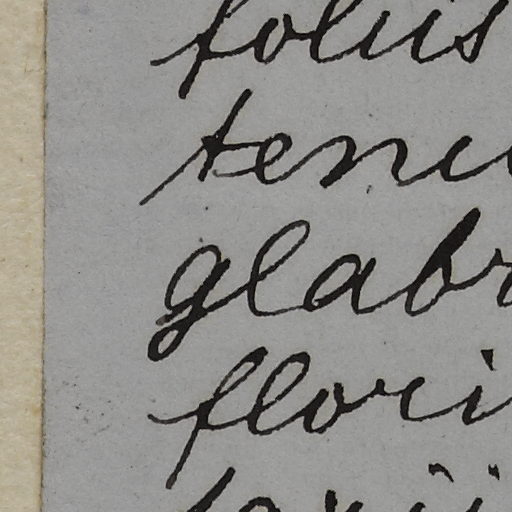 foliis
tenu
glabr
flori